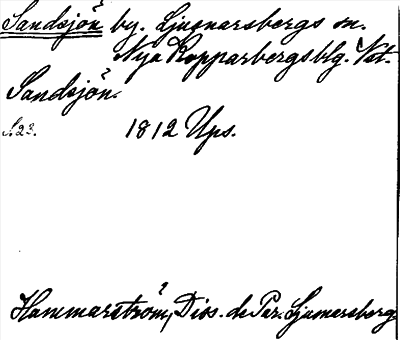 Sandsjön by. Ljusnarsbergs sn.
Nya Kopparbergs blg. Vst.
Sandsjön.
S. 23. 1812 Ups.
Hammarström, Diss. de Par. Ljusnersberg